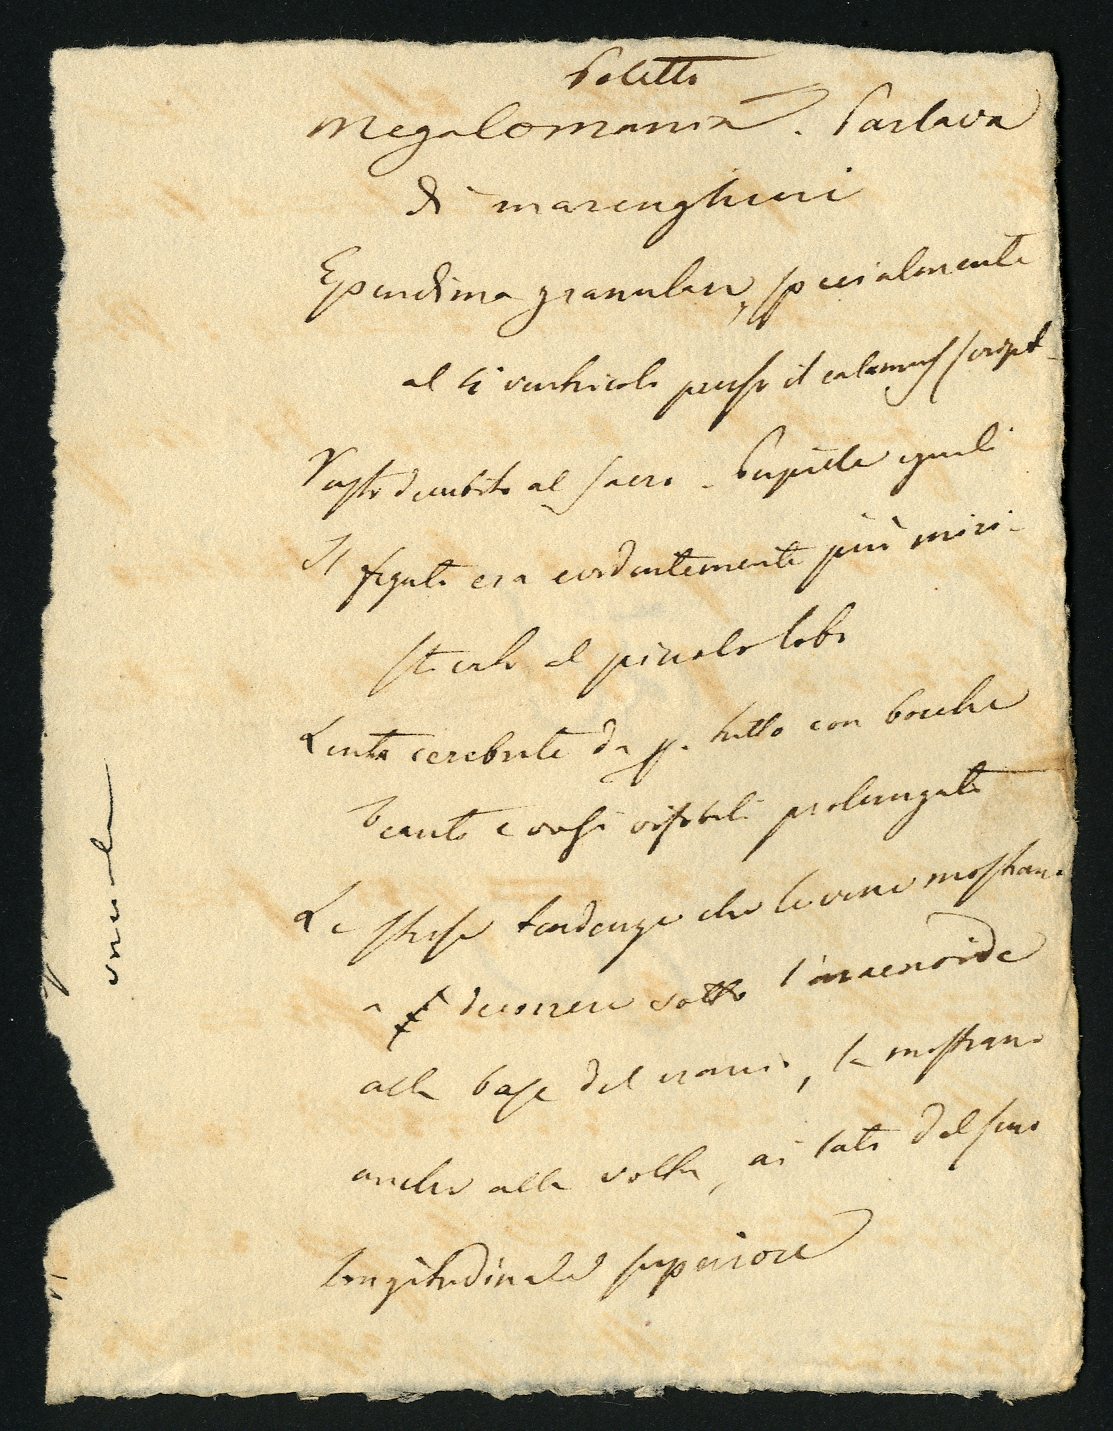 Poletti
Megalomania. Parlava
di marenghini
Ependima granulare, specialmente
al 4° ventricolo presso il calamus script-
Vasto decubito al sacro - Pupille eguali
Il fegato era evidentemente più miri-
sticato al piccolo lobo
cerebrale da p. tutto con bocche
beanti e vasi visibili prolungati
Le stesse tendenze che le vene mostrano
a decorrere sotto l'aracnoide
alla base del cranio, la mostrano
anche alla volta, ai lati del seno
longitudinale superiore